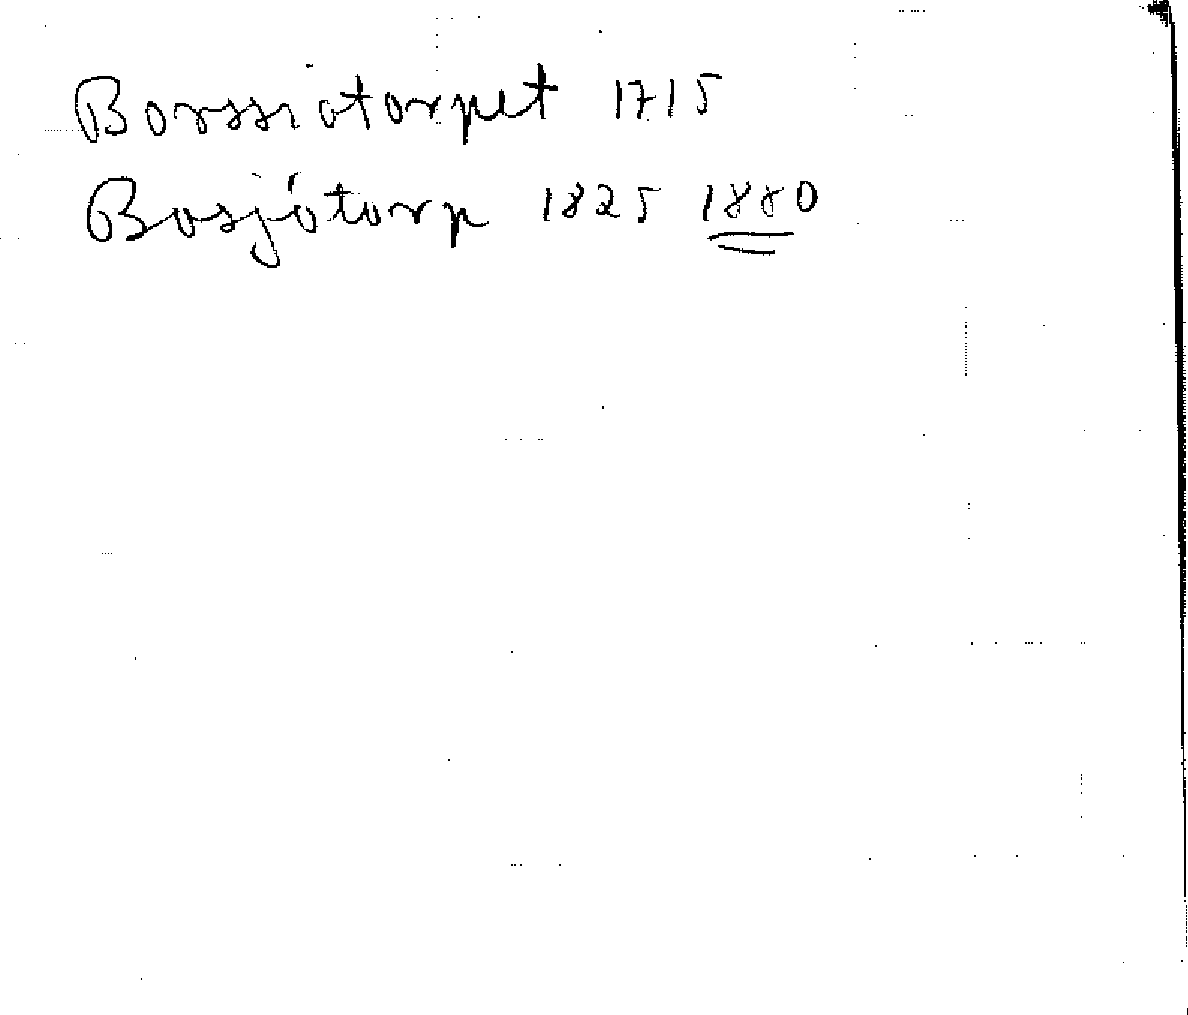 Borssiotorpet 1715
Bosjötorp 1825 1880